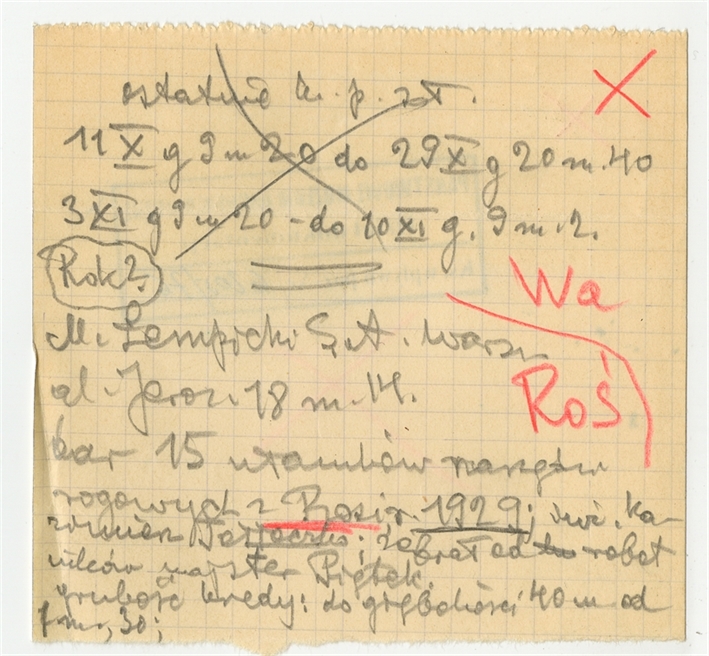 ostatnie k. p. zł.
11 X g 9 m 20 do 29 X g 20 m. 40
3 XI g 9 m 20 - do 10 XI g. 9 m. 2.
Rok?
Wa
M. Łempicki S. A. Warsz
al. Jeroz. 18 m. 14.
Roś
15 ułamków
rogowych z Rosi r. 1929; inż. Ka-
zimierz; zebrał od robot
ników majster Piątek.
grubość kredy: do głębokości 40 m od
1 m, 30;